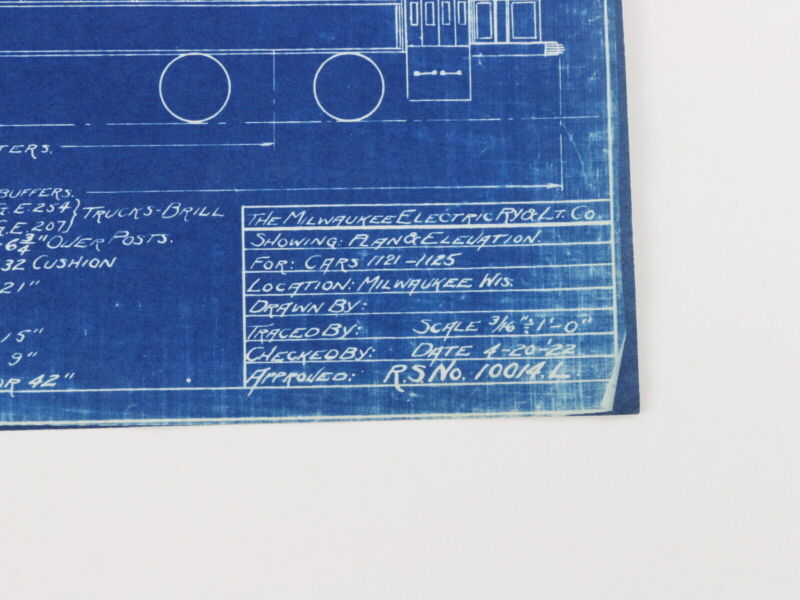 TERS.
BUFFERS.
G.E-254} TRUCKS-BRILL
G.E. 207}
-6¾" OVER POSTS.
32 CUSHION
21"
15"
9"
OR 42"
THE MILWAUKEE ELECTRIC RY & LT. CO.
SHOWING: PLAN & ELEVATION.
FOR: CARS 1121-1125
LOCATION: MILWAUKEE WIS.
DRAWN BY:
TRACED BY: SCALE 3/16" = 1'-0"
CHECKED BY: DATE 4-20-'22
APPROVED: R.S.NO. 10014.L.